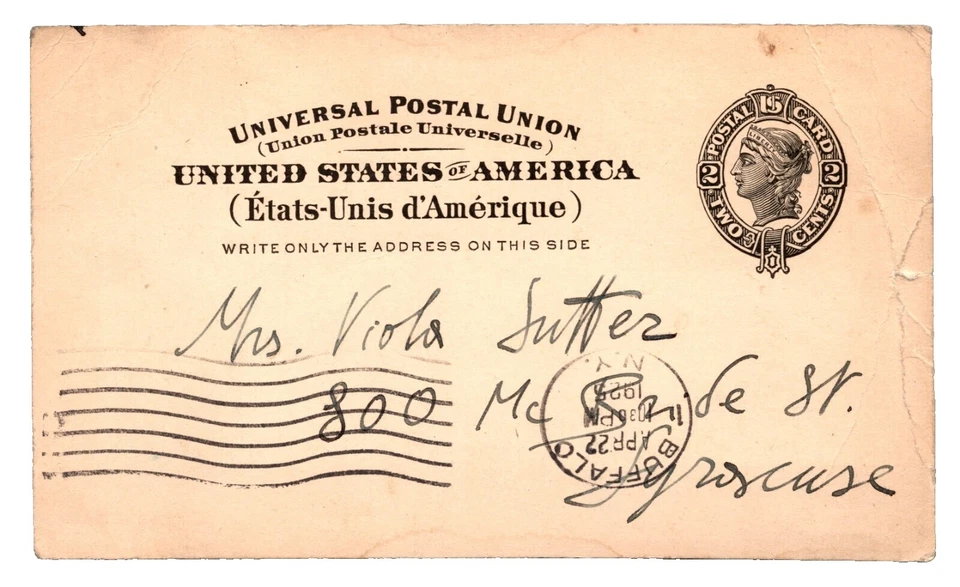 UNIVERSAL POSTAL UNION
(Union Postale Universelle)
UNITED STATES OF AMERICA
(États-Unis d'Amérique)
WRITE ONLY THE ADDRESS ON THIS SIDE
POSTAL CARD
2 2
TWO CENTS
LIBERTY
Mrs. Viola Sutter
800 Mc St.
Syroscuse
BUFFALO N.Y.
APR 22
1030 PM